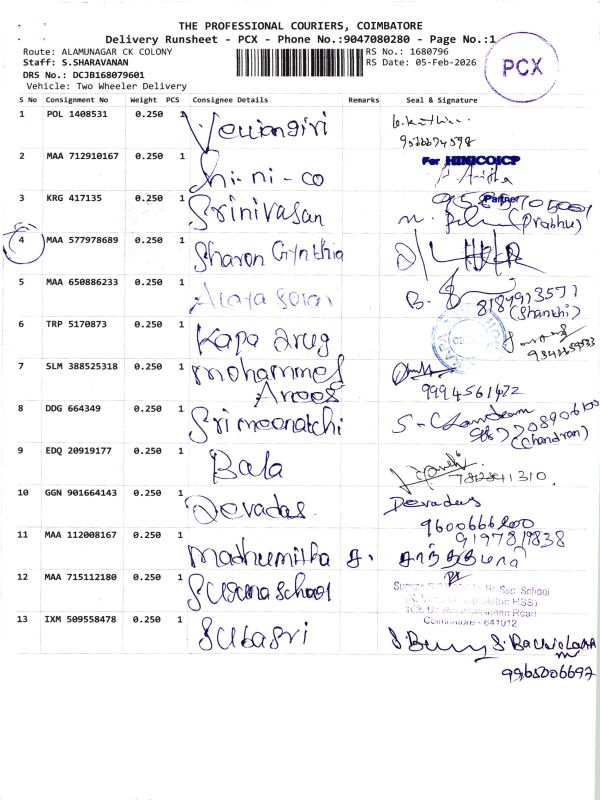 THE PROFESSIONAL COURIERS, COIMBATORE
Delivery Runsheet - PCX - Phone No.:9047080280 - Page No.:1
Route: ALAMUNAGAR CK COLONY
RS No.: 1680796
Staff: S.SHARAVANAN
RS Date: 05-Feb-2026
PCX
DRS No.: DCJB168079601
Vehicle: Two Wheeler Delivery
S No Consignment No Weight PCS Consignee Details Remarks Seal & Signature
1 POL 1408531 0.250 1
2 MAA 712910167 0.250 1 Shi-ni-co For HINICOICP
Partner
3 KRG 417135 0.250 1 Srinivasan (Prabhu)
4 MAA 577978689 0.250 1 Sharon Cynthia
5 MAA 650886233 0.250 1 8189913571
(Shanthi)
6 TRP 5170873 0.250 1 Kapa arug
7 SLM 388525318 0.250 1 Mohammed 9994561472
8 DDG 664349 0.250 1 Srimeenatchi
(Chandran)
9 EDQ 20919177 0.250 1 Bala
10 GGN 901664143 0.250 1 Devadas Devadas
9600666200
11 MAA 112008167 0.250 1 Madhumitha
12 MAA 715112180 0.250 1 Suguna School Hr Sec School
Coimbatore - 641012
13 IXM 509558478 0.250 1 Subasri
9965006697